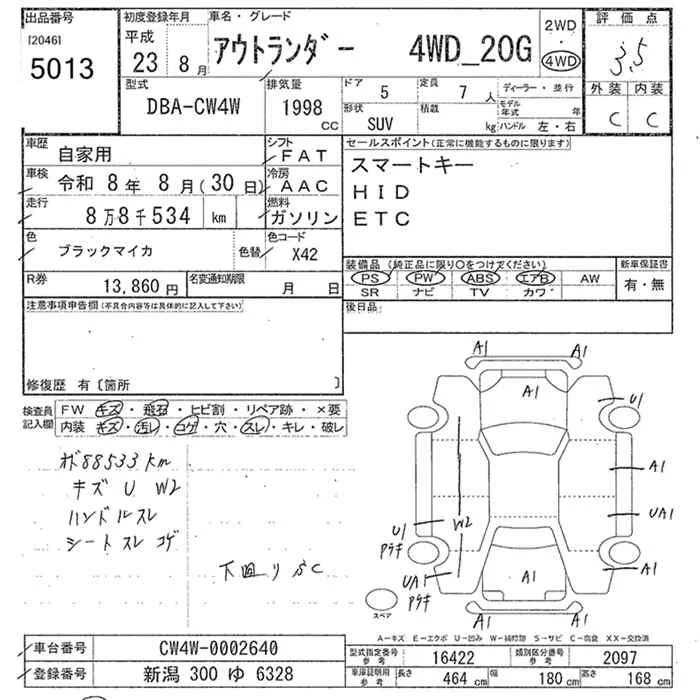 出品番号
[2046]
5013
初度登録年月
平成
23 8月
車名・グレード
アウトランダー 4WD_20G
2WD
・
4WD
評価点
3.5
外装 内装
C C
型式
DBA-CW4W
排気量
1998
CC
ドア
5
定員
7 人
ディーラー・並行
形状
SUV
積載
kg
モデル
年式
年
ハンドル 左・右
車歴
自家用
シフト
FAT
車検
令和 8年 8月(30日)
冷房
AAC
走行
8万8千534 km
燃料
ガソリン
色
ブラックマイカ
色替
色コード
X42
R券
13,860 円
名変通知期限
月 日
セールスポイント(正常に機能するものに限ります)
スマートキー
HID
ETC
装備品(純正品に限り○をつけてください)
PS PW ABS エアB AW
SR ナビ TV カワ
新車保証書
有・無
後日品
注意事項申告欄(不具合内容等は具体的に記入して下さい)
修復歴 有〔箇所 〕
検査員
記入欄
FW キズ・飛石・ヒビ割・リペア跡・×要
内装 キズ・汚レ・コゲ・穴・スレ・キレ・破レ
オド88533km
キズ U W2
ハンドルスレ
シートスレ コゲ
下廻りSC
A1
A1
U1
A1
UA1
A1
U1
アリキ
W2
UA1
アリキ
A1
A1
スペア
A-キズ E-エクボ U-凹み W-補修跡 S-サビ C-腐食 XX-交換済
車台番号
CW4W-0002640
登録番号
新潟 300 ゆ 6328
型式指定番号
参考
16422
類別区分番号
参考
2097
車庫証明用
参考
長さ
464 cm
幅
180 cm
高さ
168 cm